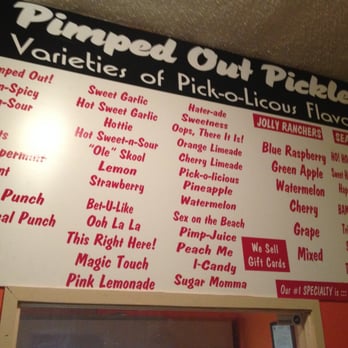 Pimped Out Pickle
Varieties of Pick-o-Licous Flavo
mped Out!
n-Spicy
n-Sour
ts
permint
nt
Punch
al Punch
Sweet Garlic
Hot Sweet Garlic
Hottie
Hot Sweet-n-Sour
"Ole" Skool
Lemon
Strawberry
Bet-U-Like
Ooh La La
This Right Here!
Magic Touch
Pink Lemonade
Hater-ade
Sweetness
Oops, There It Is!
Orange Limeade
Cherry Limeade
Pick-o-licious
Pineapple
Watermelon
Sex on the Beach
Pimp-Juice
Peach Me
I-Candy
Sugar Momma
JOLLY RANCHERS
Blue Raspberry
Green Apple
Watermelon
Cherry
Grape
Mixed
We Sell
Gift Cards
SEA
HO! HO
Sweet
Hap
BAM
Our #1 SPECIALTY is :::